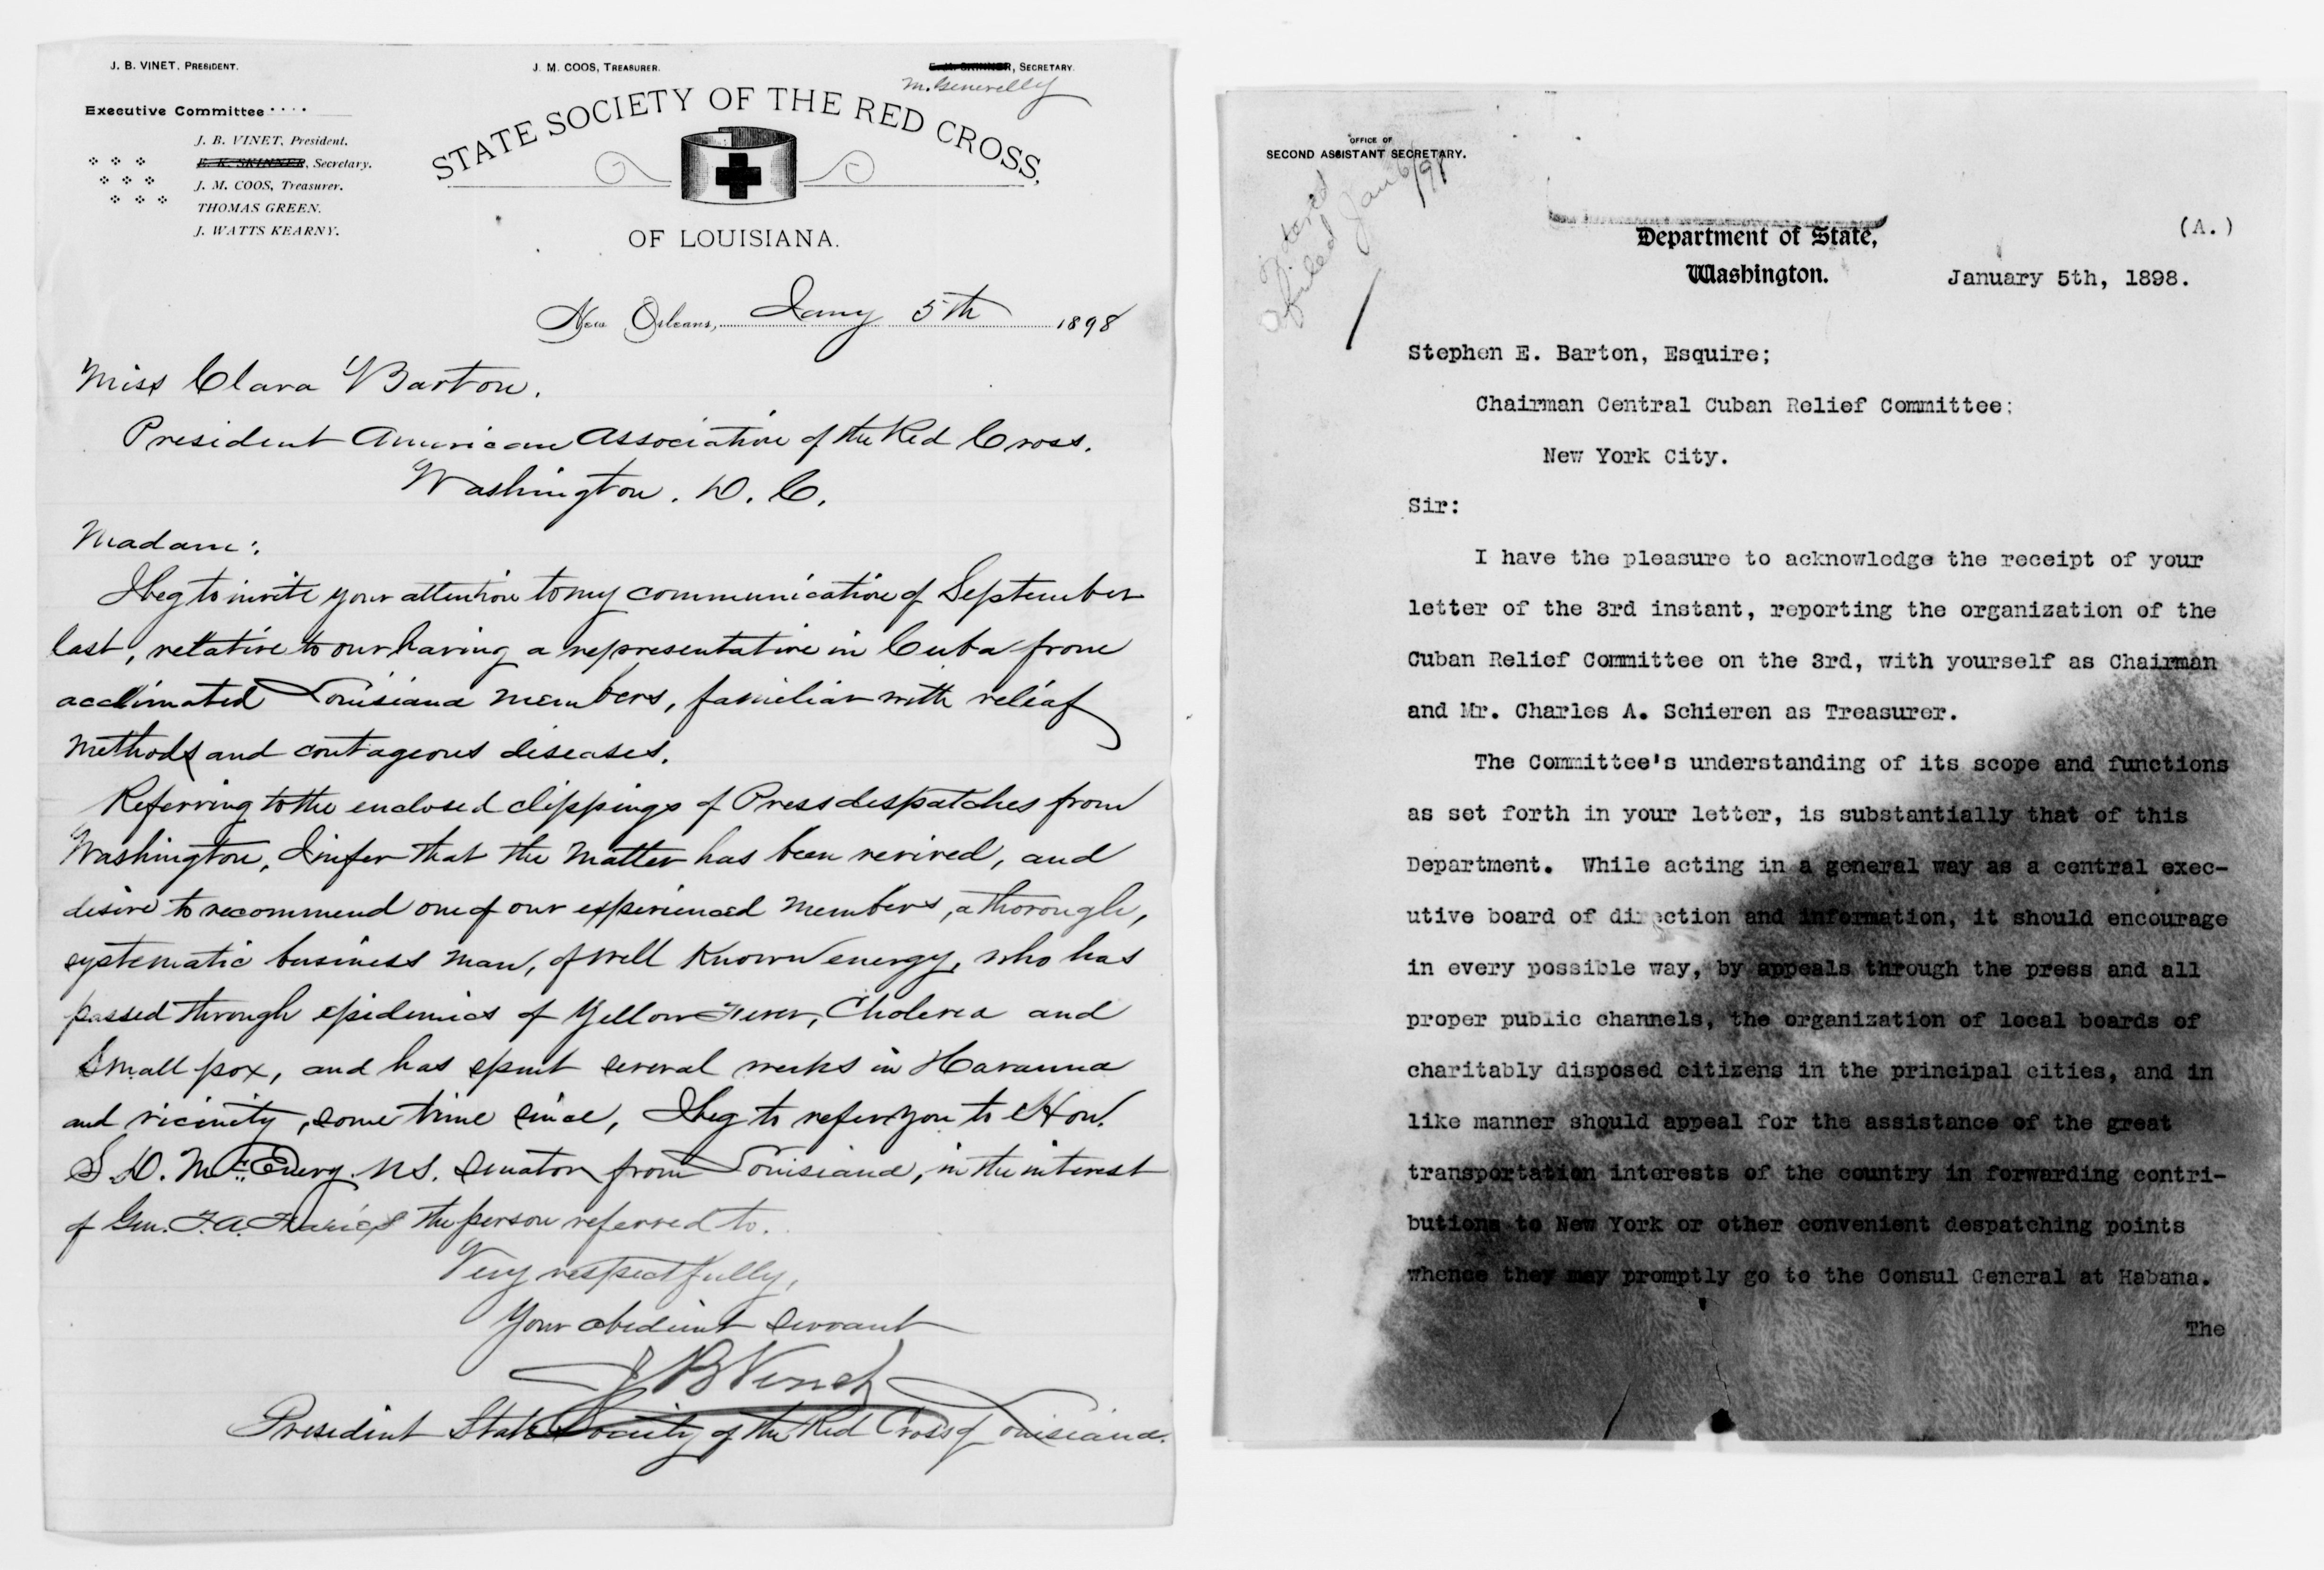 J. B. VINET, PRESIDENT.
J. M. COOS, TREASURER.
SECRETARY.
Executive Committee
J. B. VINET, President.
E. K. SKINNER, Secretary.
J. M. COOS, Treasurer.
THOMAS GREEN.
J. WATTS KEARNY.
STATE SOCIETY OF THE RED CROSS,
OF LOUISIANA.
New Orleans, Jany 5th 1898
Miss Clara Barton.
President American Association of the Red Cross.
Washington. D. C.
Madam:
I beg to invite your attention to my communication of September
last, relative to our having a representative in Cuba from
acclimated Louisiana members, familiar with relief
methods and contageous diseases.
Referring to the enclosed clippings of Press despatches from
Washington, I infer that the matter has been revived, and
desire to recommend one of our experienced members, a thorough,
systematic business man, of well known energy, who has
passed through epidemics of Yellow Fever, Cholera and
Small pox, and has spent several weeks in Havanna
and vicinity, some time since, I beg to refer you to Hon.
S. D. McEnery. U.S. Senator from Louisiana, in the interest
of Gen. F. A. the person referred to.
Very respectfully,
Your obedient servant
J B Vinet
President State Society of the Red Cross of Louisiana.
OFFICE OF
SECOND ASSISTANT SECRETARY.
Jan 6/98
Department of State,
Washington.
(A.)
January 5th, 1898.
Stephen E. Barton, Esquire;
Chairman Central Cuban Relief Committee;
New York City.
Sir:
I have the pleasure to acknowledge the receipt of your
letter of the 3rd instant, reporting the organization of the
Cuban Relief Committee on the 3rd, with yourself as Chairman
and Mr. Charles A. Schieren as Treasurer.
The Committee's understanding of its scope and functions
as set forth in your letter, is substantially that of this
Department. While acting in a general way as a central exec-
utive board of direction and information, it should encourage
in every possible way, by appeals through the press and all
proper public channels, the organization of local boards of
charitably disposed citizens in the principal cities, and in
like manner should appeal for the assistance of the great
transportation interests of the country in forwarding contri-
butions to New York or other convenient despatching points
whence they may promptly go to the Consul General at Habana.
The